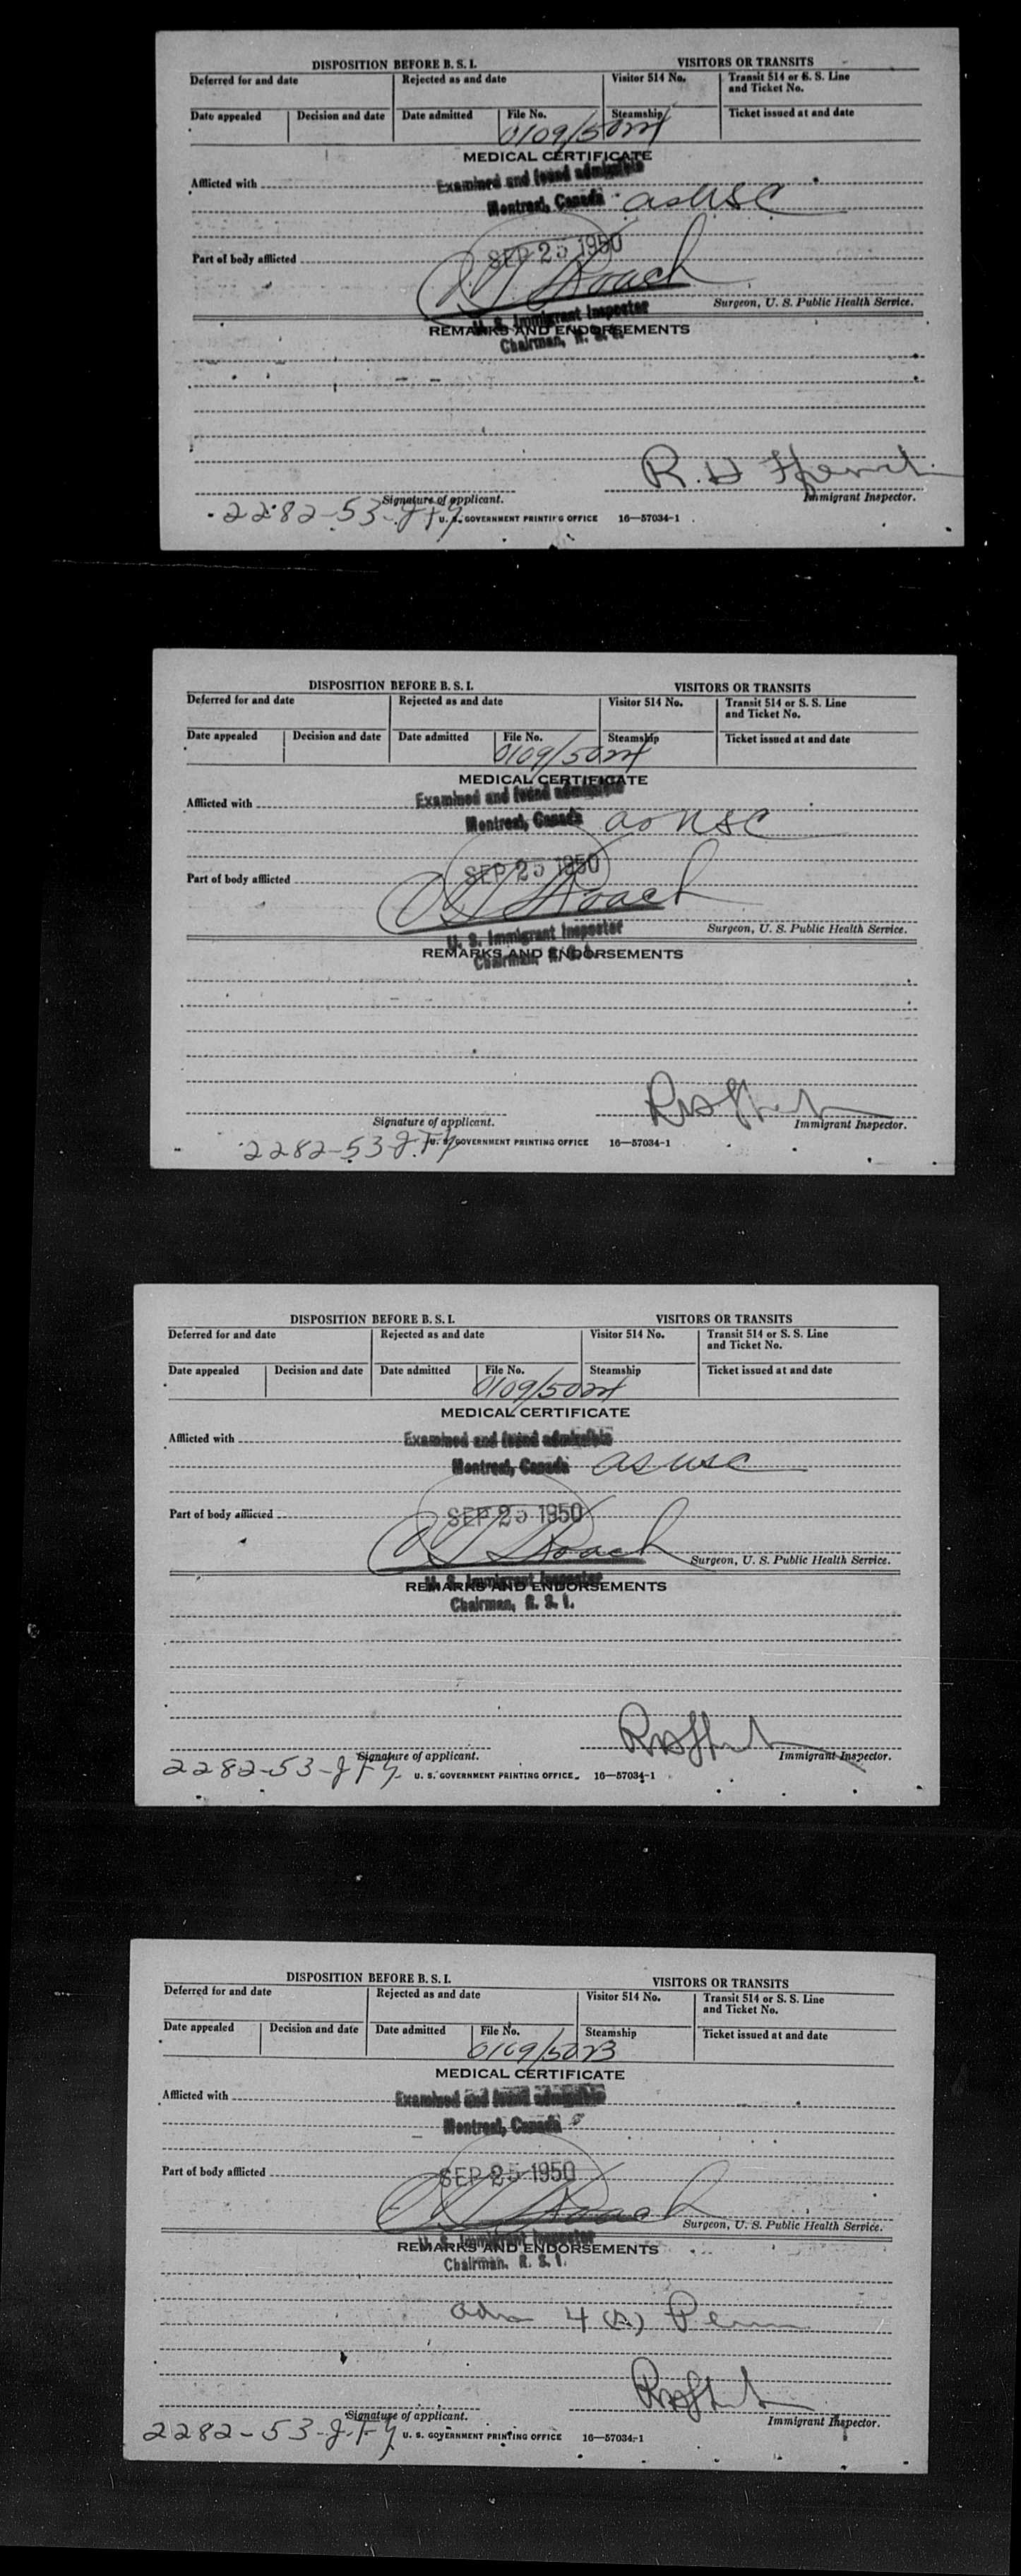 DISPOSITION BEFORE B. S. I. VISITORS OR TRANSITS
Deferred for and date Rejected as and date Visitor 514 No. Transit 514 or S. S. Line and Ticket No.
Date appealed Decision and date Date admitted File No. Steamship Ticket issued at and date
0109/50
MEDICAL CERTIFICATE
Examined and found admissible
Afflicted with
Montreal, Canada as USC
SEP 25 1950
Part of body afflicted
Roach
Surgeon, U. S. Public Health Service.
U. S. Immigrant Inspector
REMARKS AND ENDORSEMENTS
Chairman, B. S. I.
R. H
Signature of applicant. Immigrant Inspector.
2282-53-J.F.y
U. S. GOVERNMENT PRINTING OFFICE 16—57034-1
DISPOSITION BEFORE B. S. I. VISITORS OR TRANSITS
Deferred for and date Rejected as and date Visitor 514 No. Transit 514 or S. S. Line and Ticket No.
Date appealed Decision and date Date admitted File No. Steamship Ticket issued at and date
0109/50
MEDICAL CERTIFICATE
Examined and found admissible
Afflicted with
Montreal, Canada as USC
SEP 25 1950
Part of body afflicted
Roach
Surgeon, U. S. Public Health Service.
U. S. Immigrant Inspector
REMARKS AND ENDORSEMENTS
Chairman, B. S. I.
Signature of applicant. Immigrant Inspector.
2282-53-J.F.y
U. S. GOVERNMENT PRINTING OFFICE 16—57034-1
DISPOSITION BEFORE B. S. I. VISITORS OR TRANSITS
Deferred for and date Rejected as and date Visitor 514 No. Transit 514 or S. S. Line and Ticket No.
Date appealed Decision and date Date admitted File No. Steamship Ticket issued at and date
0109/50
MEDICAL CERTIFICATE
Afflicted with Examined and found admissible
Montreal, Canada as USC
Part of body afflicted SEP 25 1950
Roach
Surgeon, U. S. Public Health Service.
U. S. Immigrant Inspector
REMARKS AND ENDORSEMENTS
Chairman, B. S. I.
Signature of applicant. Immigrant Inspector.
2282-53-J.F.y
U. S. GOVERNMENT PRINTING OFFICE 16—57034-1
DISPOSITION BEFORE B. S. I. VISITORS OR TRANSITS
Deferred for and date Rejected as and date Visitor 514 No. Transit 514 or S. S. Line and Ticket No.
Date appealed Decision and date Date admitted File No. Steamship Ticket issued at and date
0109/50
MEDICAL CERTIFICATE
Afflicted with Examined and found admissible
Montreal, Canada
Part of body afflicted SEP 25 1950
Roach
Surgeon, U. S. Public Health Service.
U. S. Immigrant Inspector
REMARKS AND ENDORSEMENTS
Chairman, B. S. I.
adm 4 (A) Perm
Signature of applicant. Immigrant Inspector.
2282-53-J.F.y
U. S. GOVERNMENT PRINTING OFFICE 16—57034-1